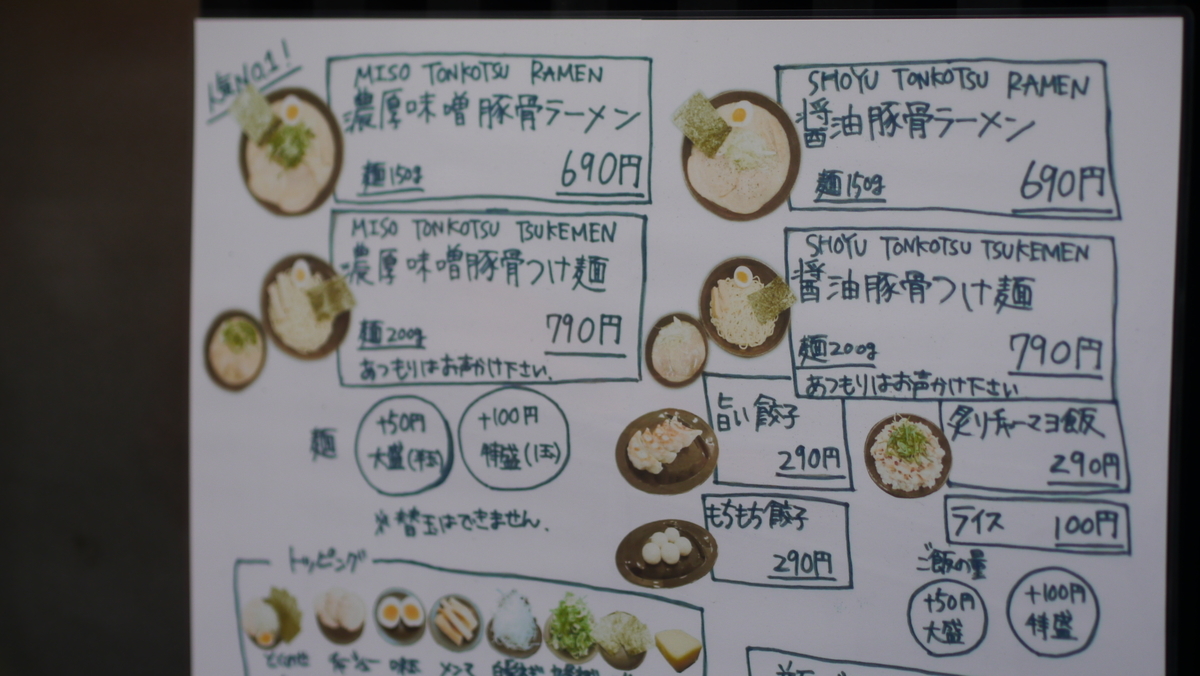 人気NO.1!
MISO TONKOTSU RAMEN
濃厚味噌豚骨ラーメン
麺150g
690円
SHOYU TONKOTSU RAMEN
醤油豚骨ラーメン
麺150g
690円
MISO TONKOTSU TSUKEMEN
濃厚味噌豚骨つけ麺
麺200g
790円
あつもりはお声かけ下さい.
SHOYU TONKOTSU TSUKEMEN
醤油豚骨つけ麺
麺200g
790円
あつもりはお声かけ下さい
麺
+50円
大盛(半玉)
+100円
特盛(1玉)
※替玉はできません.
旨い餃子
290円
炙りチャーマヨ飯
290円
もちもち餃子
290円
ライス 100円
ご飯の量
+50円
大盛
+100円
特盛
トッピング
チャーシュー
味玉
メンマ